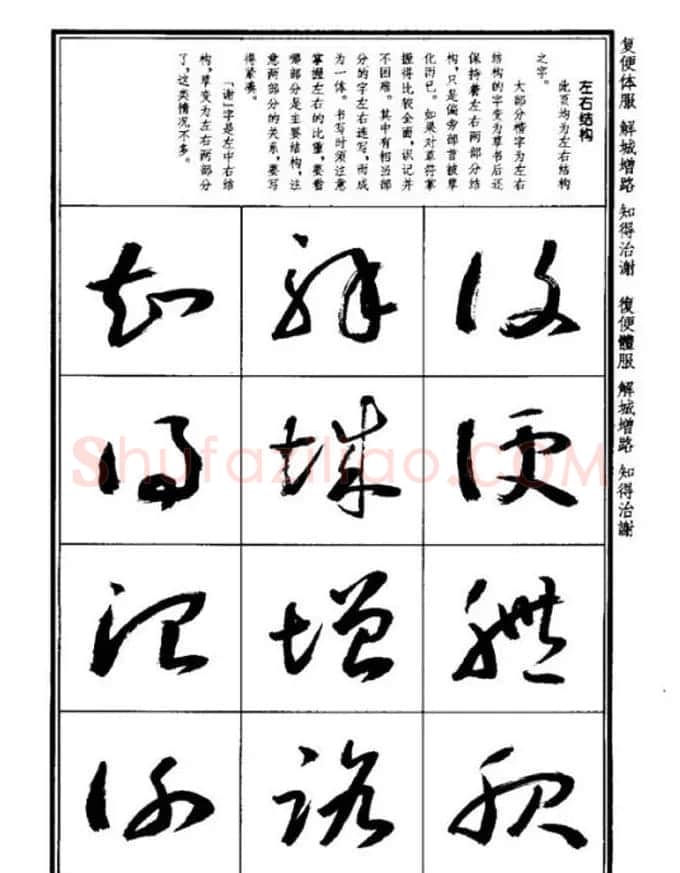 复便体服 解城增路 知得治谢 復便體服 解城增路 知得治謝
左右结构
此页均为左右结构
之字。
大部分楷字为左右
结构的字变为草书后还
保持着左右两部分结
构,只是偏旁部首被草
化而已。如果对草符掌
握得比较全面,识记并
不困难。其中有相当部
分的字左右连写,而成
为一体。书写时须注意
掌握左右的比重,要看
哪部分是主要结构,注
意两部分的关系,要写
得紧凑。
「谢」字是左中右结
构,草变为左右两部分
了,这类情况不多。
復
便
體
服
解
城
增
路
知
得
治
謝
Shufaziliao.COM